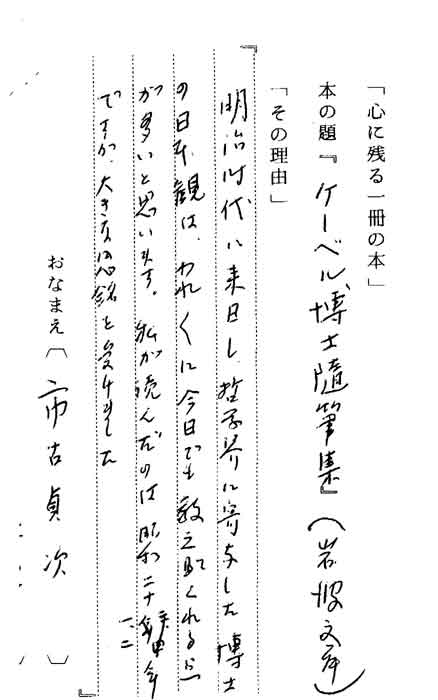 「心に残る一冊の本」
本の題『ケーベル博士随筆集』(岩波文庫)
「その理由」
明治時代に来日し、哲学界に寄与した博士
の日本観は、われ〱に今日でも教え助くれる点
が多いと思います。私が読んだのは昭和二十年
一、二
ですが、大きな感銘を受けました
おなまえ〔市古貞次〕